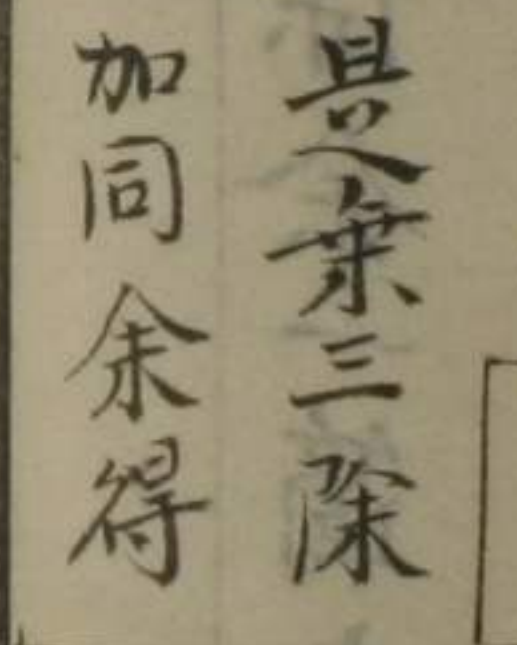 是乗三除
加同余得